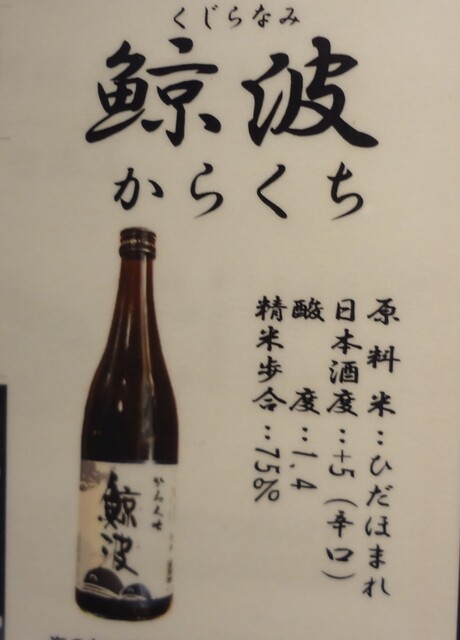 くじらなみ
鯨波
からくち
原料米：ひだほまれ
日本酒度：+5（辛口）
酸度：1.4
精米歩合：75%
からくち
鯨波